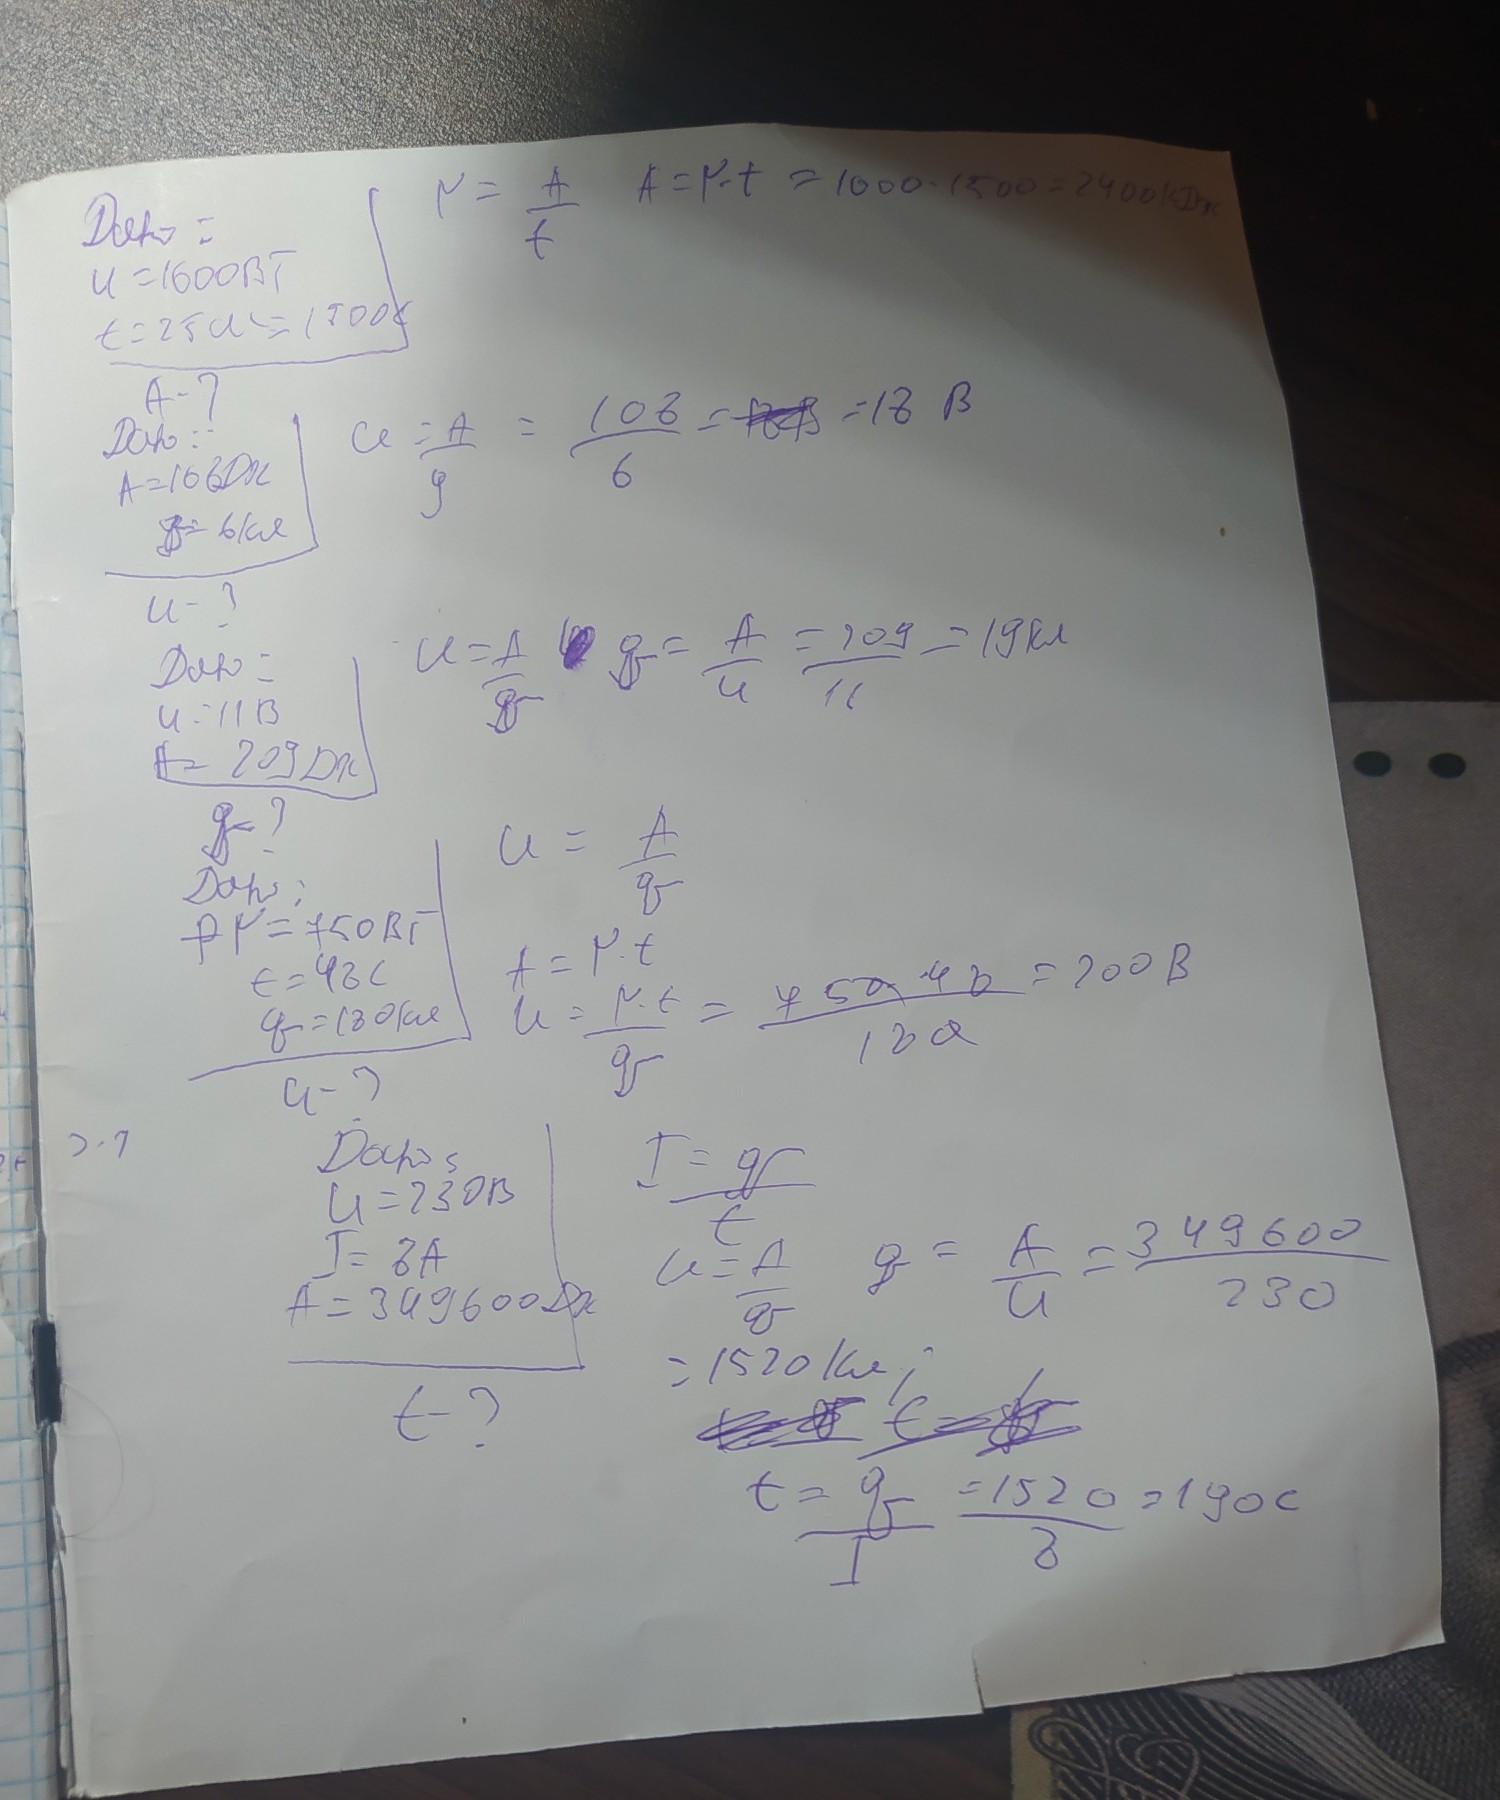 Дано:
U = 1600 Вт
t = 25 м = 1500 с
A - ?
N = A/t A = N·t = 1000·1500 = 2400 кДж
Дано:
A = 108 Дж
q = 6 Кл
U - ?
U = A/q = 108/6 = = 18 В
Дано:
U = 11 В
A = 209 Дж
q - ?
U = A/q q = A/U = 209/11 = 19 Кл
Дано:
N = 750 Вт
t = 48 с
q = 180 Кл
U - ?
U = A/q
A = N·t
U = N·t/q = 750·48/180 = 200 В
Дано:
U = 230 В
I = 8 А
A = 349600 Дж
t - ?
I = q/t
U = A/q q = A/U = 349600/230
= 1520 Кл;
t = q/I = 1520/8 = 190 с